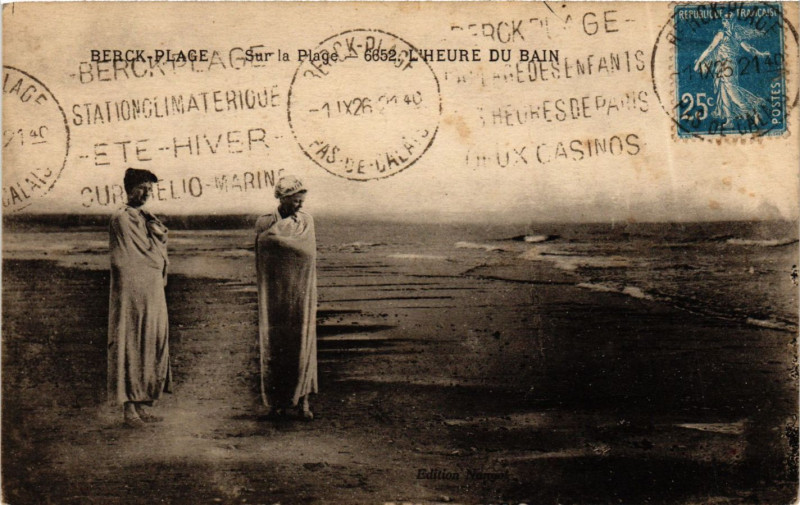 BERCK-PLAGE Sur la Plage 6652. L'HEURE DU BAIN
LAGE
21 40
CALAIS
-BERCK-PLAGE
STATION CLIMATERIQUE
-ETE-HIVER-
CURE HELIO-MARINE
BERCK-PLAGE
-1 IX 26 21 40
PAS-DE-CALAIS
BERCK-PLAGE-
PLAGE DES ENFANTS
HEURES DE PARIS
DEUX CASINOS
REPUBLIQUE FRANÇAISE
25c
POSTES
-1 IX 26 21 40
Edition